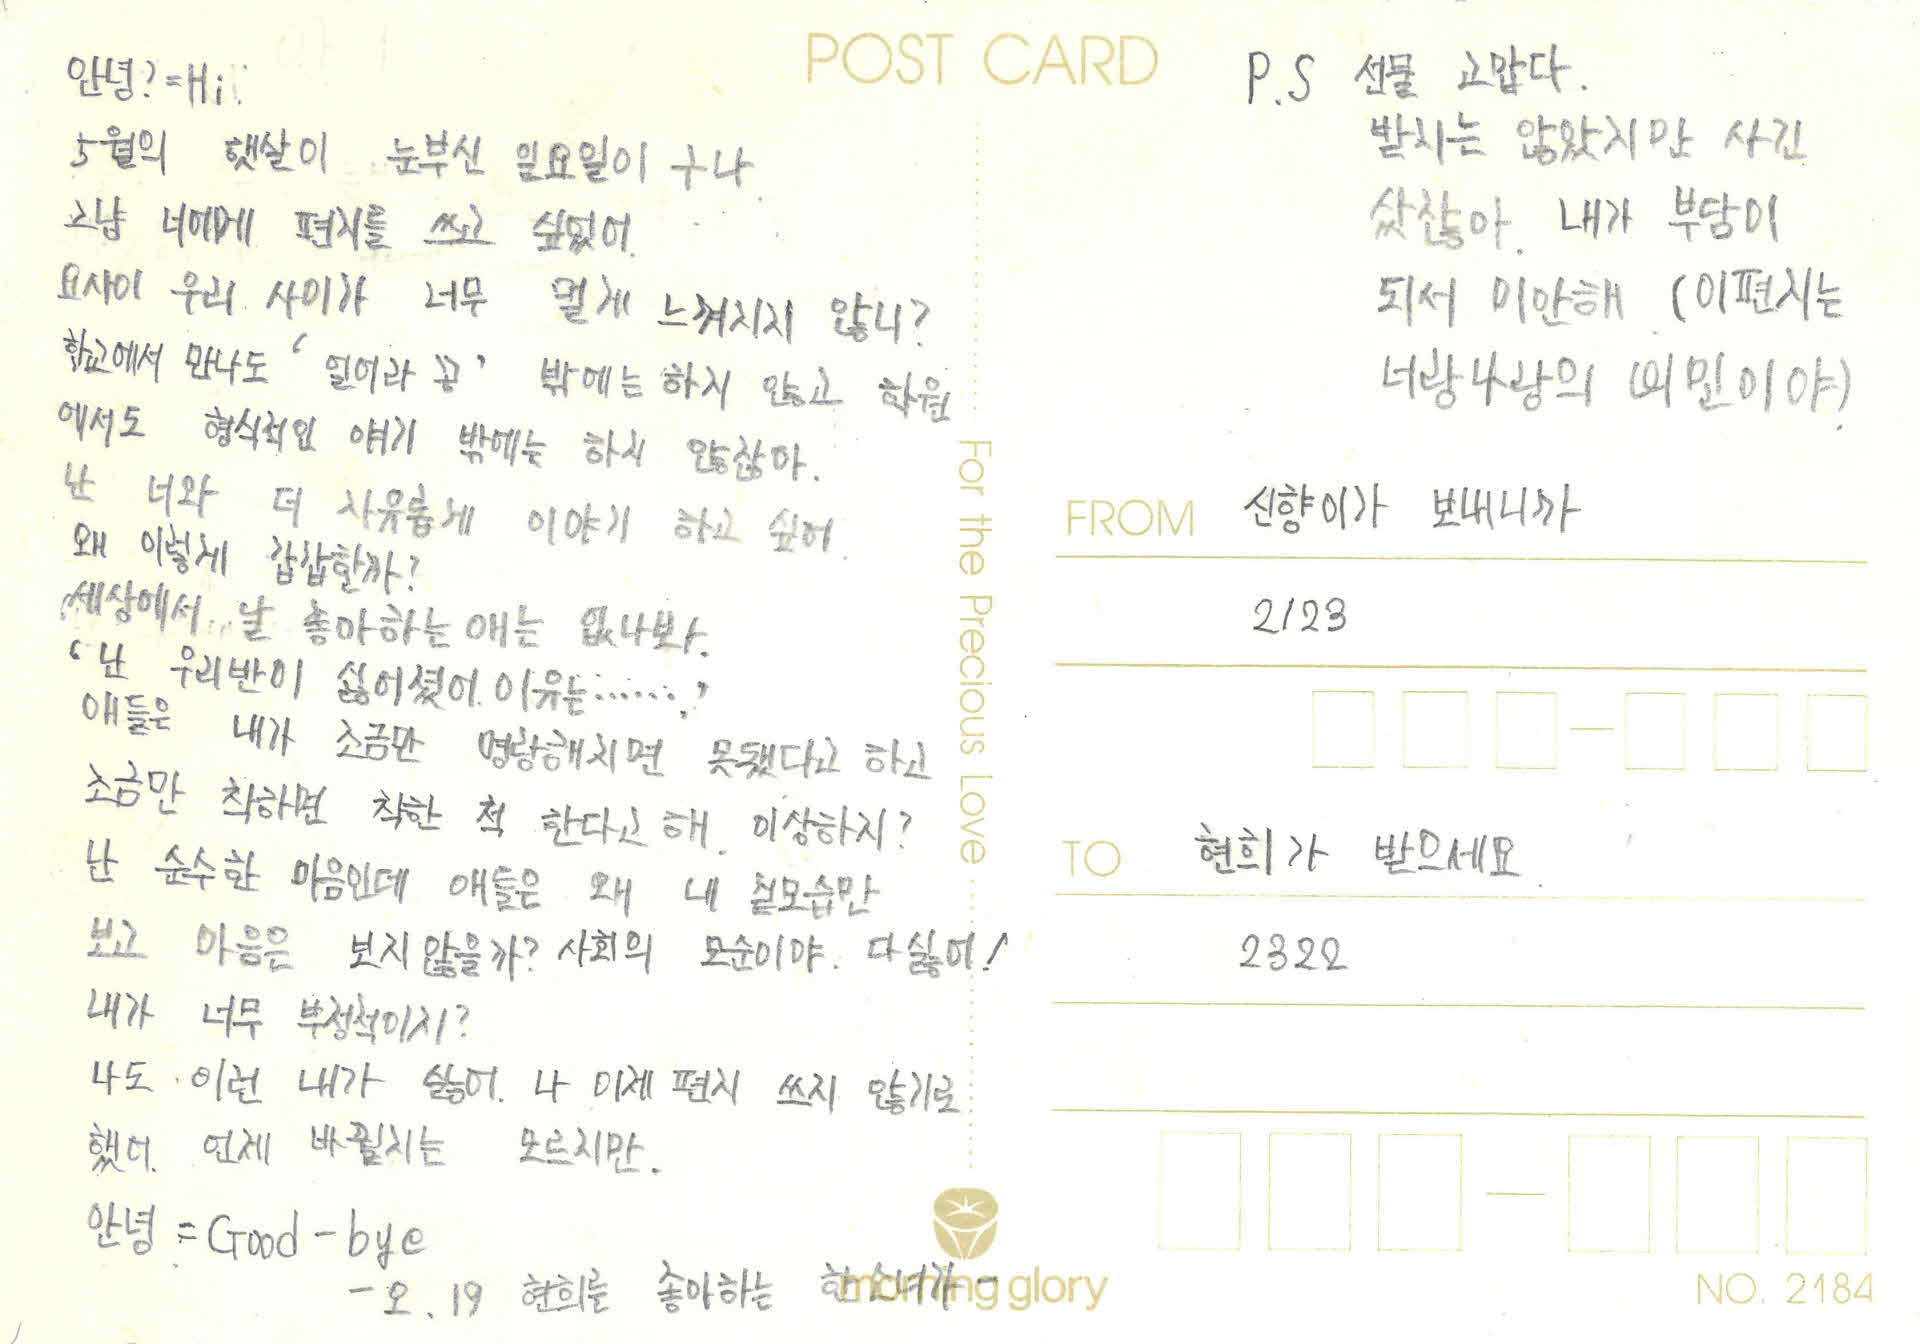 POST CARD
안녕?=Hi
5월의 햇살이 눈부신 일요일이구나
그냥 너에게 편지를 쓰고 싶었어.
요사이 우리 사이가 너무 멀게 느껴지지 않니?
학교에서 만나도 '일어라 꽁' 밖에는 하지 않고 학원
에서도 형식적인 얘기 밖에는 하지 않찮아.
난 너와 더 자유롭게 이야기 하고 싶어.
왜 이렇게 갑갑한까?
세상에서 날 좋아하는 애는 없나보다.
'난 우리반이 싫어졌어. 이유는…….'
애들은 내가 조금만 명랑해지면 못됐다고 하고
조금만 착하면 착한 척 한다고 해. 이상하지?
난 순수한 마음인데 애들은 왜 내 겉모습만
보고 마음은 보지않을까? 사회의 모순이야. 다싫어!
내가 너무 부정적이지?
나도 이런 내가 싫어. 나 이제 편지 쓰지 않기로
했어. 언제 바뀔지는 모르지만.
안녕 = Good-bye
-오.19 현희를 좋아하는 한소녀가-
For the Precious Love
morning glory
P.S 선물 고맙다.
받지는 않았지만 사긴
샀잖아. 내가 부담이
되서 미안해 (이편지는
너랑나랑의 비밀이야)
FROM 신향이가 보내니까
2123
TO 현희가 받으세요.
2322
NO. 2184